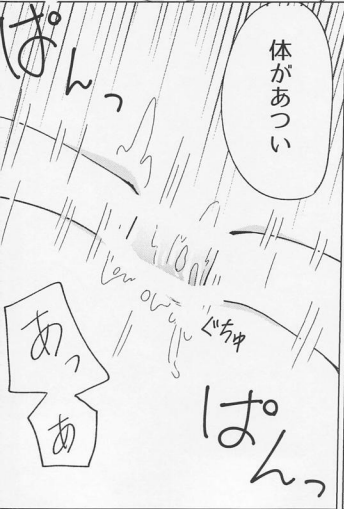 体があつい
ぱんっ
ぐちゅ
あっ
あ
ぱんっ